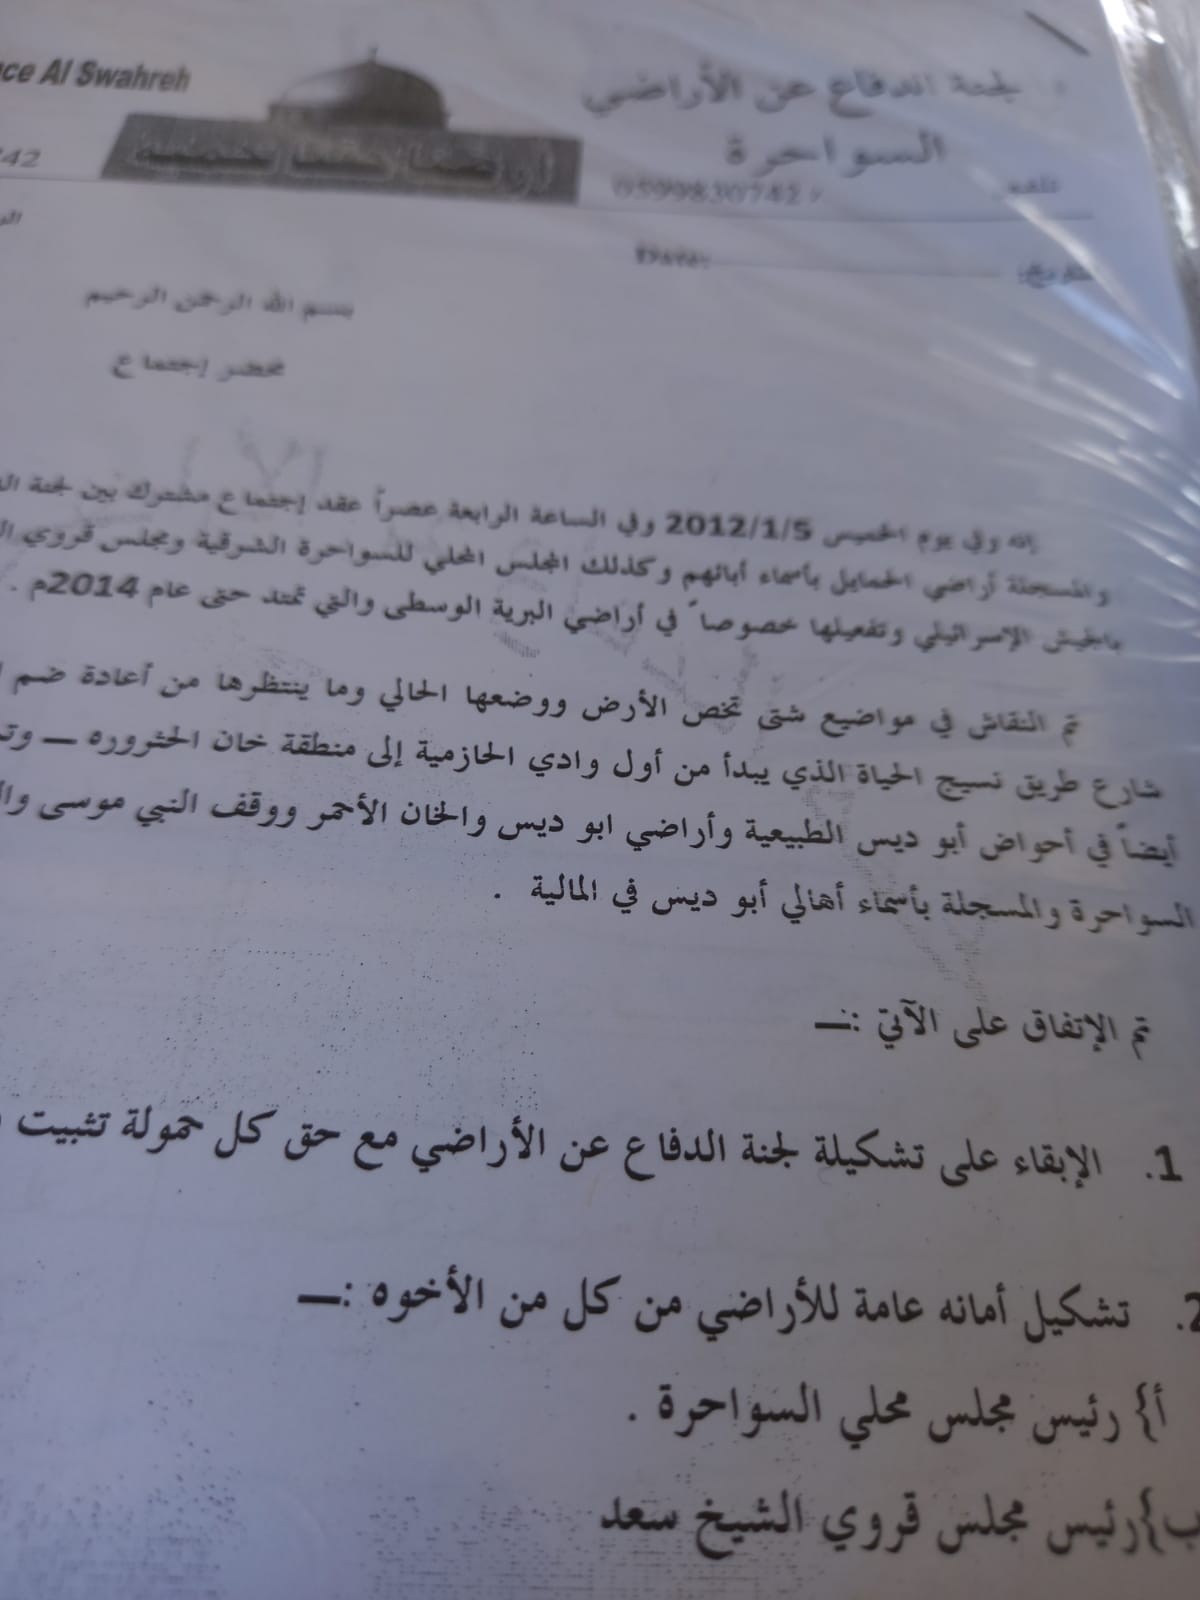 ce Al Swahreh
لجنة الدفاع عن الأراضي
السواحرة
742
تلفه 0599830742
تاريخ:
بسم الله الرحمن الرحيم
محضر إجتماع
إنه وفي يوم الخميس 2012/1/5 وفي الساعة الرابعة عصراً عقد إجتماع مشترك بين لجنة
والمسجلة أراضي الحمايل بأسماء أبائهم وكذلك المجلس المحلي للسواحرة الشرقية ومجلس قروي
بالجيش الإسرائيلي وتفعيلها خصوصاً في أراضي البرية الوسطى والتي تمتد حتى عام 2014م .
تم النقاش في مواضيع شتى تخص الأرض ووضعها الحالي وما ينتظرها من أعادة ضم
شارع طريق نسيج الحياة الذي يبدأ من أول وادي الحازمية إلى منطقة خان الحثروره ــ
أيضاً في أحواض أبو ديس الطبيعية وأراضي ابو ديس والخان الأحمر ووقف النبي موسى
السواحرة والمسجلة بأسماء أهالي أبو ديس في المالية .
تم الإتفاق على الآتي :ــ
1. الإبقاء على تشكيلة لجنة الدفاع عن الأراضي مع حق كل حمولة تثبيت
2. تشكيل أمانه عامة للأراضي من كل من الأخوه :ــ
أ} رئيس مجلس محلي السواحرة .
ب}رئيس مجلس قروي الشيخ سعد